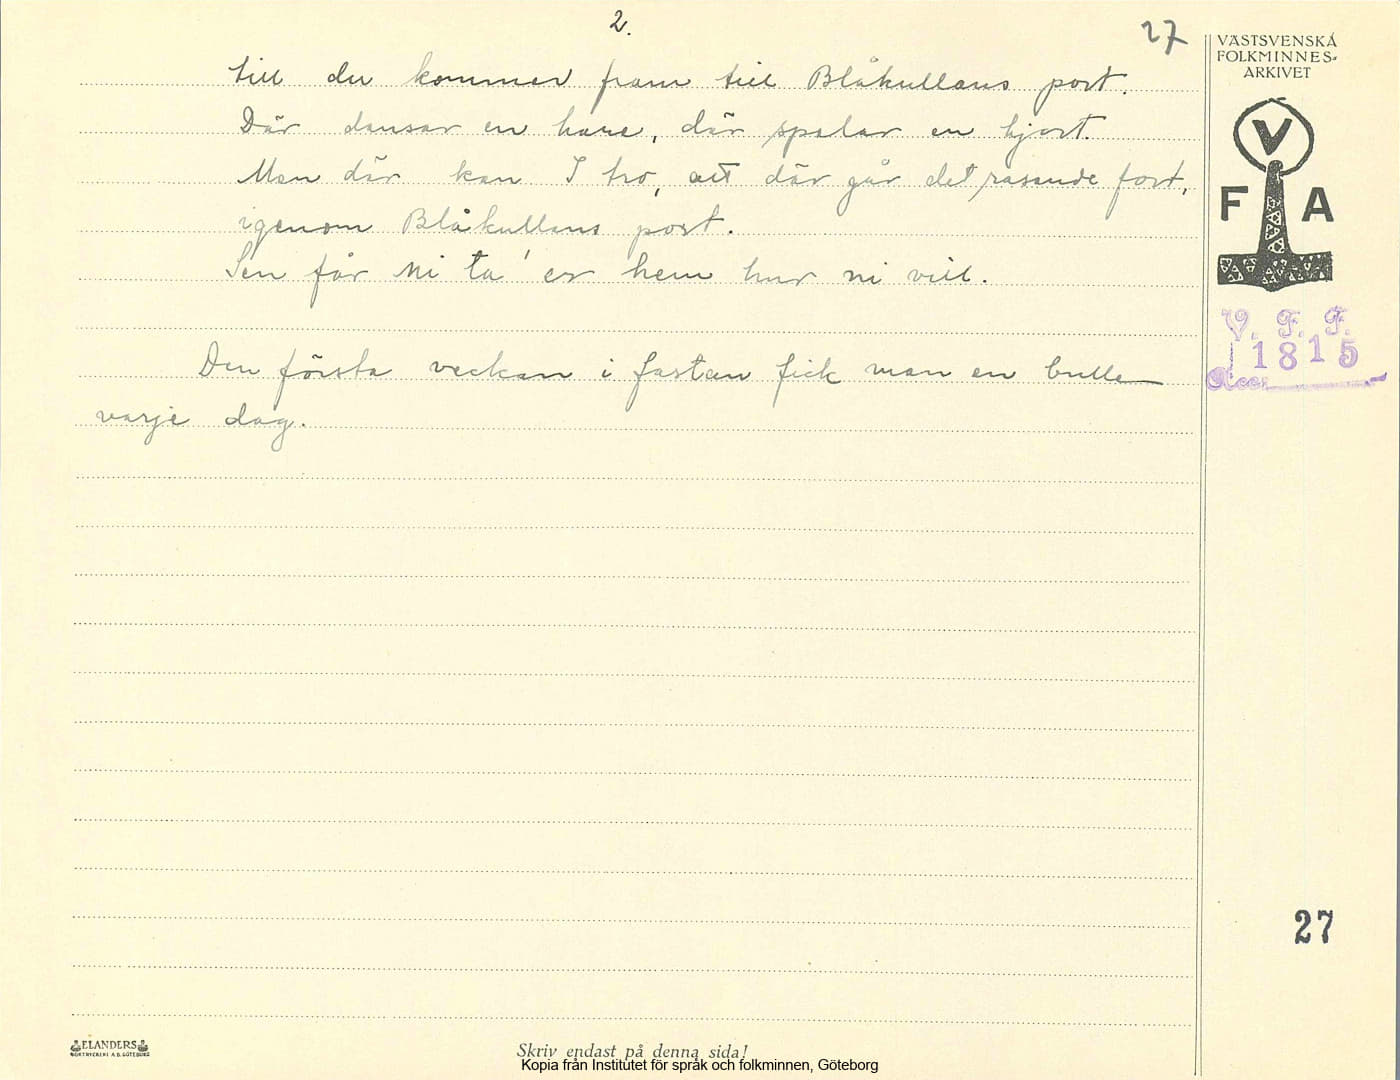 2.
27
till du kommer fram till Blåkullans port.
Där dansar en hare, där spelar en hjort.
Men där kan I tro, att där går det rasande fort,
igenom Blåkullans port.
Sen får ni ta' er hem hur ni vill.
Den första veckan i fastan fick man en bulle
varje dag.
VÄSTSVENSKA
FOLKMINNES-
ARKIVET
V
F A
V. F. F.
1815
Acc.
27
ELANDERS
BOKTRYCKERI A.B. GÖTEBORG
Skriv endast på denna sida!
Kopia från Institutet för språk och folkminnen, Göteborg